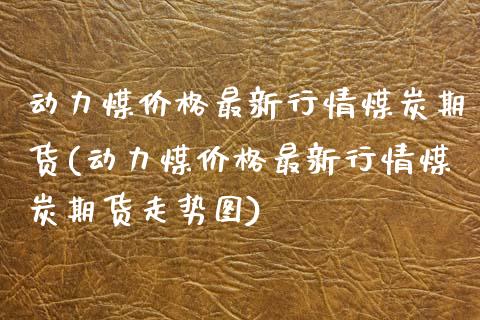 动力煤价格最新行情煤炭期
货(动力煤价格最新行情煤
炭期货走势图)